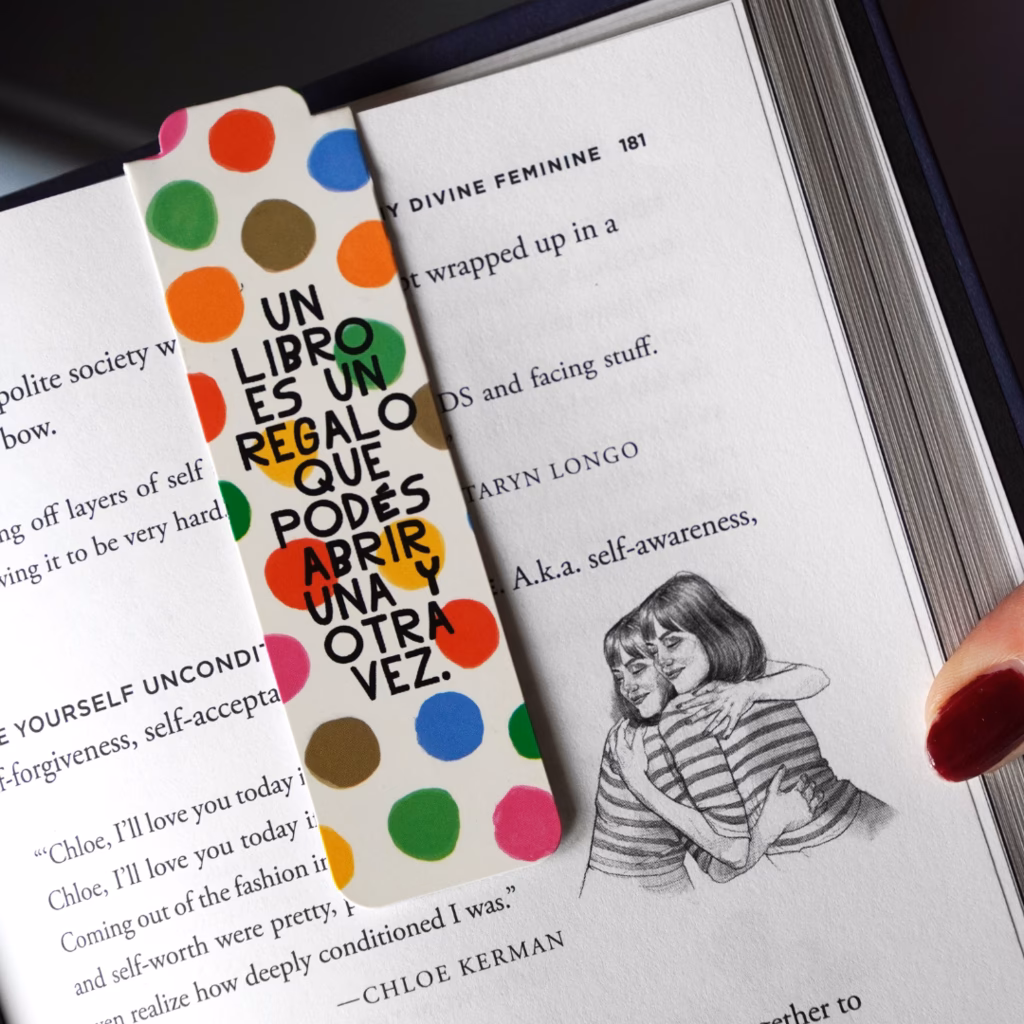 Y DIVINE FEMININE 181
wrapped up in a
polite society
bow.
DS and facing stuff.
ng off layers of self
ving it to be very hard.
TARYN LONGO
A.k.a. self-awareness,
E YOURSELF UNCONDIT
f-forgiveness, self-accepta
"‘Chloe, I’ll love you today
Chloe, I’ll love you today
Coming out of the fashion
and self-worth were pretty,
ven realize how deeply conditioned I was.”
—CHLOE KERMAN
gether to
UN
LIBRO
ES UN
REGALO
QUE
PODÉS
ABRIR
UNA Y
OTRA
VEZ.